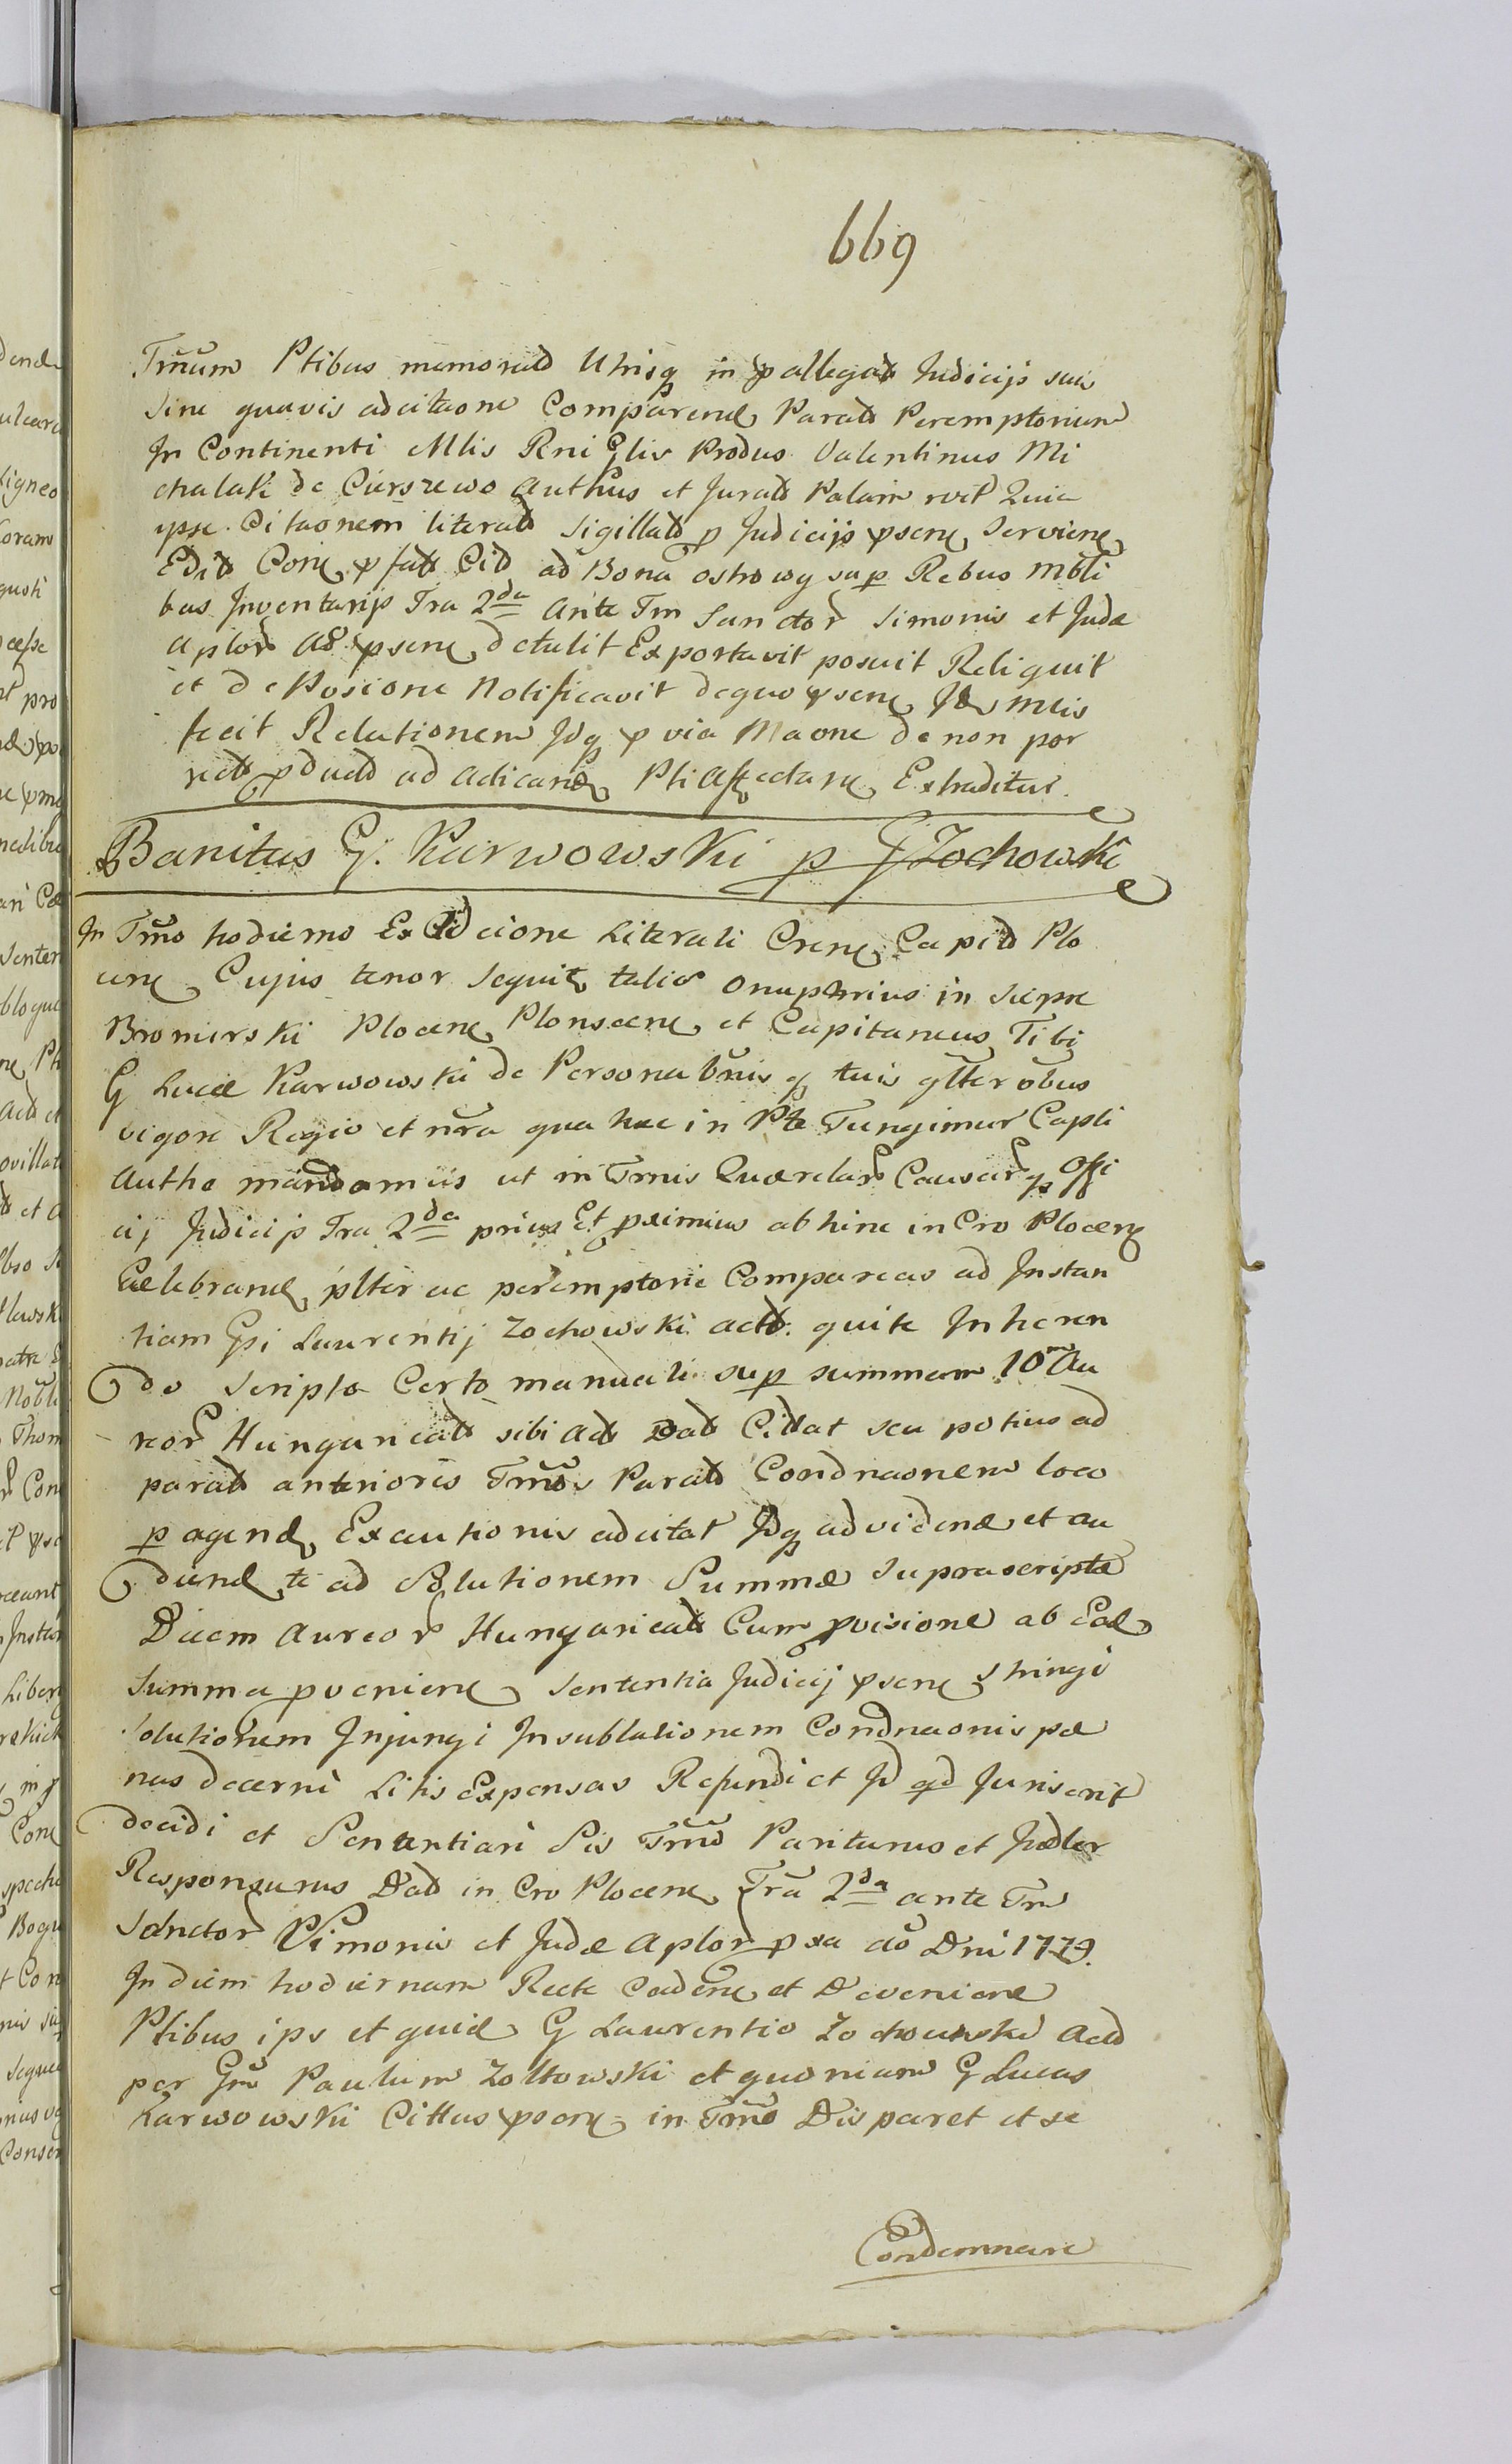 669
Tmũm Ptibus memorat Utrisq in pallegat Judicijs suis
Sine quavis adcitaone Comparend Parat Peremptorium
In Continenti Mlis Rni Glis Produs Valentinus Mi
chalski de Cierszewo Authus et Jurat Palam rvit Quia
ipse Citaonem literat Sigillat p Judicijs psen Servien
Edit Con pfat Cit ad Bona ostrowy sup Rebus Mbli
bus Inventarijs Fra 2da ante Fm Sanctor Simonis et Judæ
Aplor Aō psen detulit Exportavit posuit Reliquit
et de Posione Notificavit de quo psen Ids Mlis
fecit Relationem Idq p via Maone de non por
rect pduct ad adicand Pti Affectan Extraditur.
Banitus G. Karwowski p G Zochowski
In Tmo hodierno Ex Citcione Literali Cren Capit Plo
cen Cujus tenor Sequit talis Onuphrius in Siepre
Bromirski Plocen Plonscen et Capitaneus Tibi
G Lucæ Karwowski de Persona bnis q tuis gtter obus
vigore Regio et nra qua hac in Pte Fungimur Capli
Autht mandamus ut in Tmis Querelar Causar q Offi
cij Judicijs Fra 2da prius Et pximius abhinc in Cro Plocen
Celebrand pltter ac peremptorie Compareas ad Instan
tiam Gsi Laurentij Zochowski act. qui te Inheren
do Scripto Certo manuali sup summam 10m Au
reor Hungaricat sibi act Dat Citat seu potius ad
parat anterioris Tmos Parat Condnaonem loco
p agend Executionis adcitat Idq ad videnæ et au
diend te ad Solutionem Summæ Suprascriptæ
Decem Aureor Hungaricat Cum pvisione ab Ead
Summa pvenien Sententia Judicij psen Stringi
Solutionem Injungi In sublationem Condnaonis pæ
nas decerni Litis Expensas Refundi et Id qd Juris erit
decidi et Sententiari Sis Tmo Pariturus et Judler
Responsurus Dat in Cro Plocen Fra 2da ante Fm
Sanctor Simonis et Judæ Aplor pxa aō Dni 1779.
In diem hodiernam Recte Caden et Devenien
Ptibus ips et quid G Laurentio Zochowski Act
per Gm Paulum Zoltowski et quoniam G Lucas
Karwowski Cittus psen in Tmo Dis paret et se
Condemnare